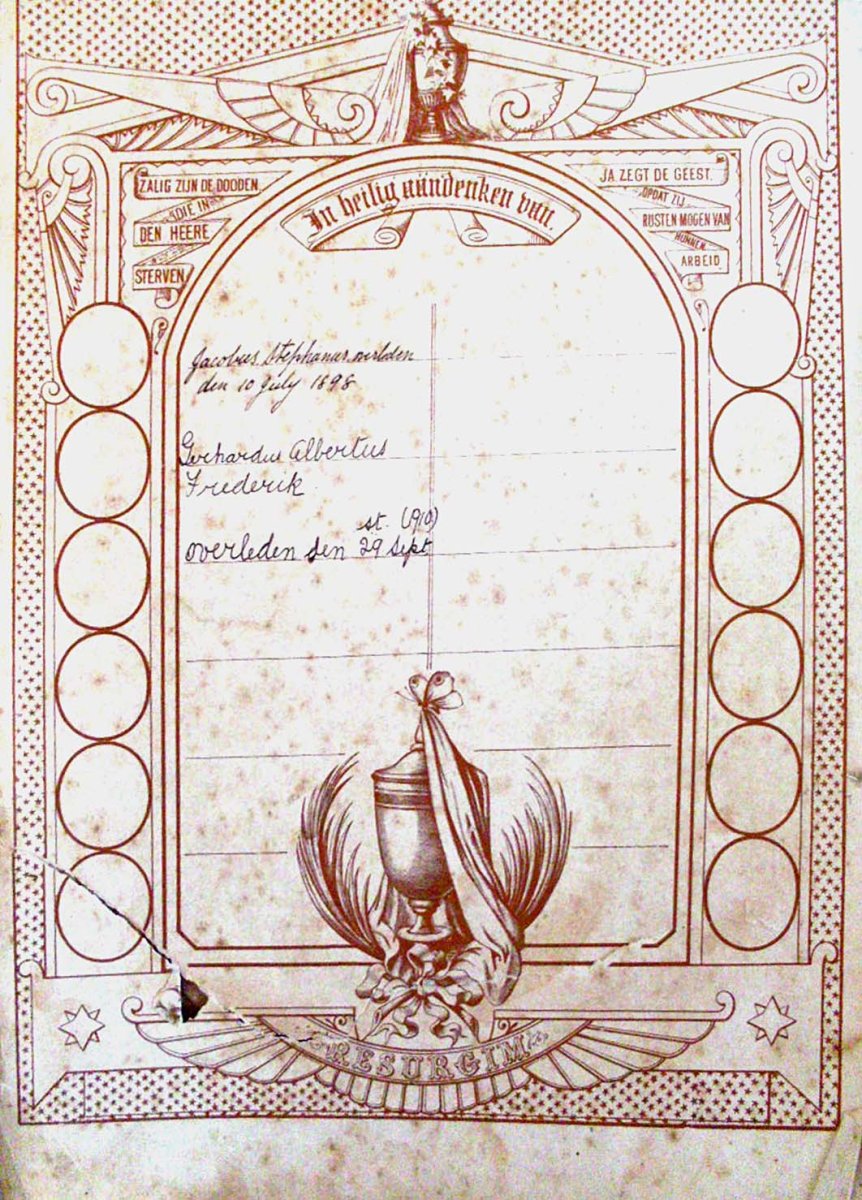 ZALIG ZIJN DE DOODEN
DIE IN
DEN HEERE
STERVEN
In heilig aandenken van.
JA ZEGT DE GEEST.
OPDAT ZIJ
RUSTEN MOGEN VAN
HUNNEN
ARBEID
Jacobus Stephanus overlden
den 10 July 1898
Gerhardus Albertus
Frederik
st. (910)
overleden den 29 Sept
RESURGIM